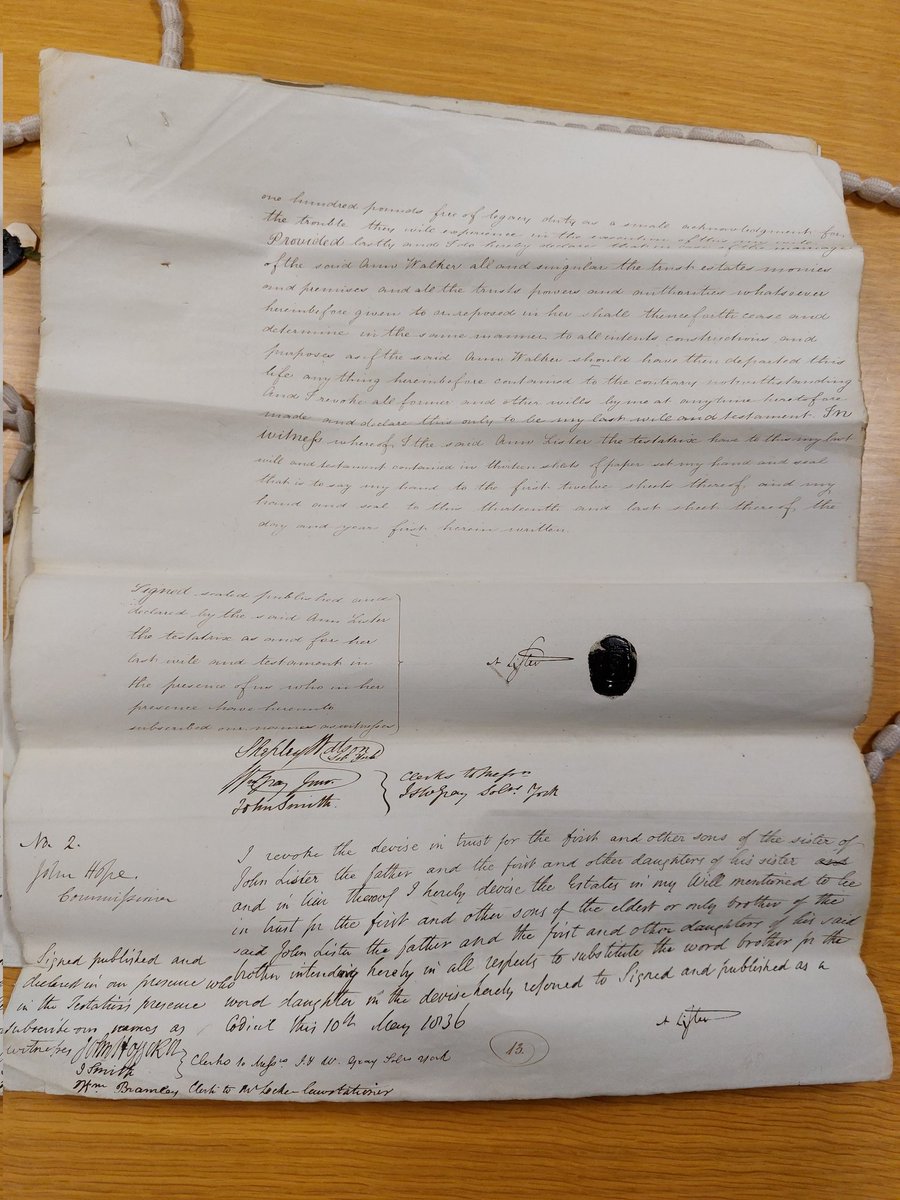 one hundred pounds free of legacy duty as a small acknowledgment for
the trouble they will experience in the execution of this my will
Provided lastly and I do hereby declare that marriage
of the said Ann Walker all and singular the trust estates monies
and premises and all the trusts powers and authorities whatsoever
hereinbefore given to or reposed in her shall thenceforth cease and
determine in the same manner to all intents constructions and
purposes as if the said Ann Walker should have then departed this
life any thing hereinbefore contained to the contrary notwithstanding
And I revoke all former and other wills by me at anytime heretofore
made and declare this only to be my last will and testament In
witness whereof I the said Ann Lister the testatrix have to this my last
will and testament contained in thirteen sheets of paper set my hand and seal
that is to say my hand to the first twelve sheets thereof and my
hand and seal to this thirteenth and last sheet thereof the
day and year first herein written.
Signed sealed published and
declared by the said Ann Lister
the testatrix as and for her
last will and testament in
the presence of us who in her
presence have hereunto
subscribed our names as witnesses
A Lister
Shepley Watson
Sol York
Wm Gray Junr.
John Smith.
Clerks to Messrs
J & W Gray Solrs York
No. 2.
John Hope.
Commissioner
I revoke the devise in trust for the first and other sons of the sister of
John Lister the father and the first and other daughters of his sister and
and in lieu thereof I hereby devise the Estates in my Will mentioned to be
in trust for the first and other sons of the eldest or only brother of the
said John Lister the father and the first and other daughters of his said
brother intending hereby in all respects to substitute the word brother for the
word daughter in the devise hereby referred to Signed and published as a
Codicil this 10th May 1836
A Lister
Signed published and
declared in our presence who
in the Testatrix presence
subscribe our names as
witnesses
J Smith
Clerks to Messrs J & W. Gray Solrs York
Wm Bramley Clerk to Mr lawstationer
13.